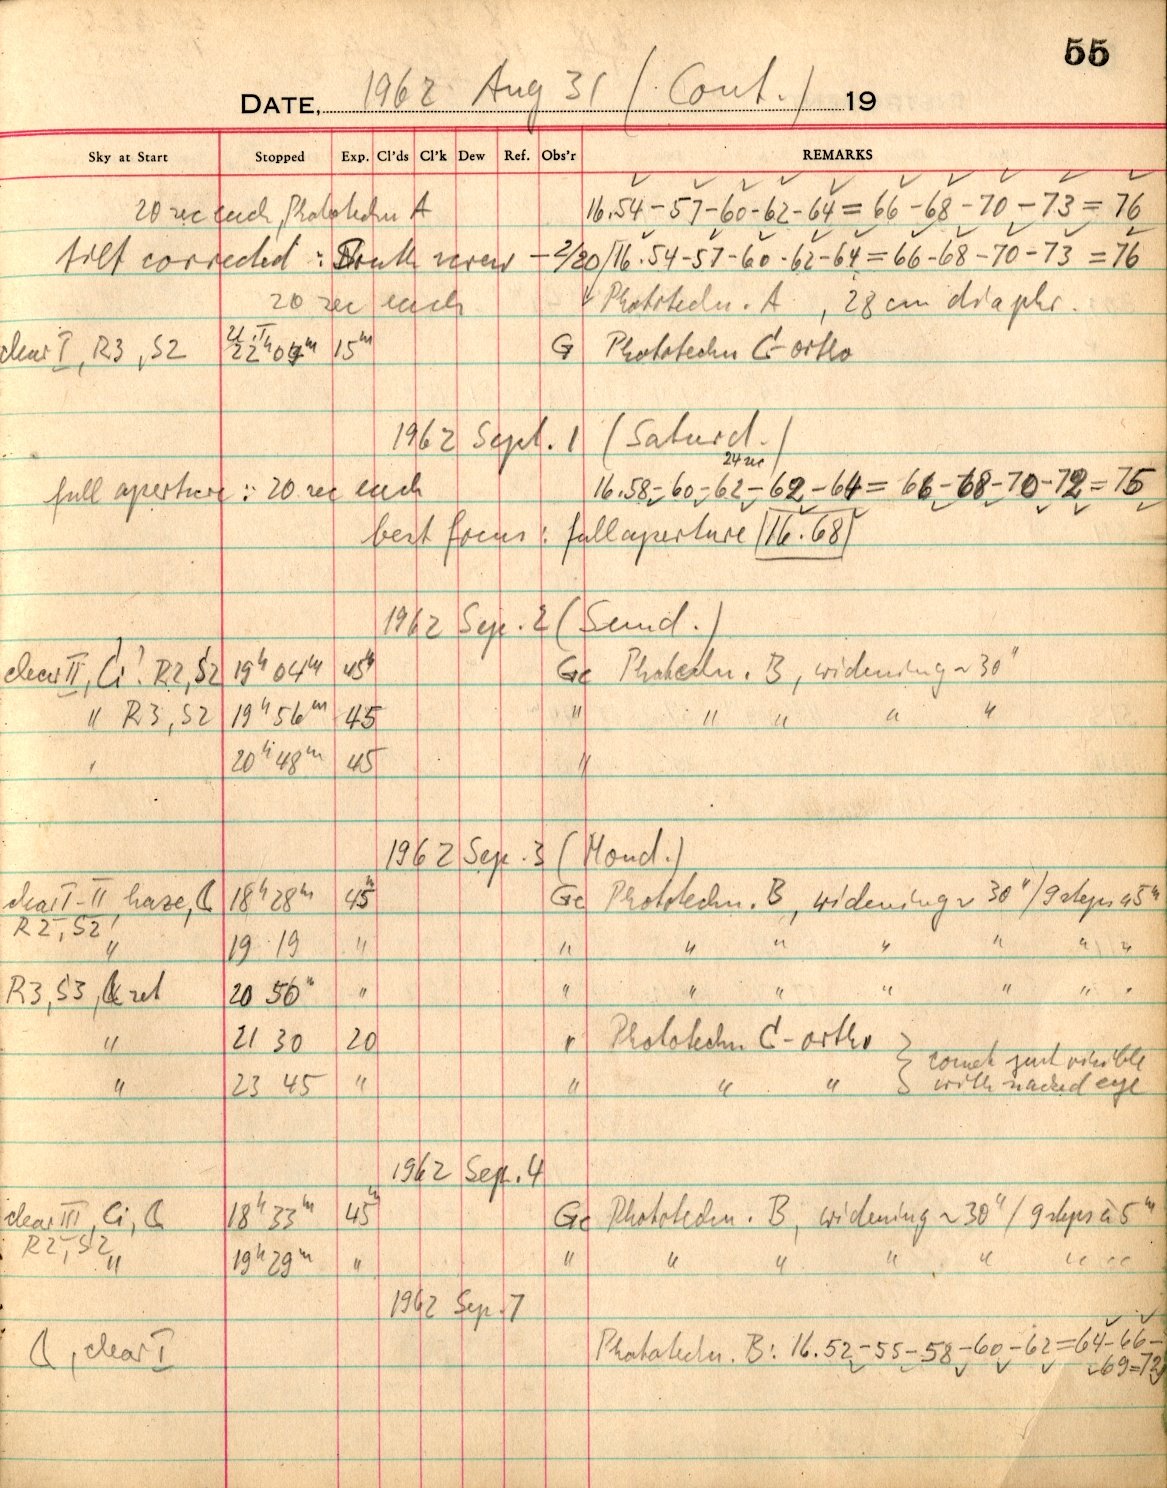 55
DATE, 1962 Aug 31 (Cont.) 19
Sky at Start Stopped Exp. Cl'ds Cl'k Dew Ref. Obs'r REMARKS
20 sec each Phototechn A 16.54-57-60-62-64=66-68-70-73=76
tilt corrected : South screw -2/20/16.54-57-60-62-64=66-68-70-73=76
20 sec each Phototechn. A, 28 cm diaphr.
clear I, R3, S2 22h 15m G Phototechn C-ortho
1962 Sept. 1 (Saturd.)
24 sec
full aperture : 20 sec each 16.58-60-62-62-64=66-68-70-72=75
best focus : full aperture 16.68
1962 Sep. 2 (Sund.)
clear II, Ci? R2, S2 19h 04m 45m Gc Phototechn. B, widening ~30"
" R3, S2 19h 56m 45 " " " " "
" 20h 48m 45 "
1962 Sep. 3 (Mond.)
clear I-II, haze, ☾ 18h 28m 45m Gc Phototechn. B, widening ~ 30"/9 steps à 5"
R2, S2
" 19 19 " " " " " " " "
R3, S3, ☾ set 20 50m " " " " " " " "
" 21 30 20 " Phototechn C-ortho } comet just visible
" 23 45 " " " " with naked eye
1962 Sep. 4
clear III, Ci, ☾ 18h 33m 45m Gc Phototechn. B, widening ~30"/9 steps à 5"
R2, S2
" 19h 29m " " " " " " " "
1962 Sep. 7
☾, clear I Phototechn. B: 16.52-55-58-60-62=64-66-
-69=72